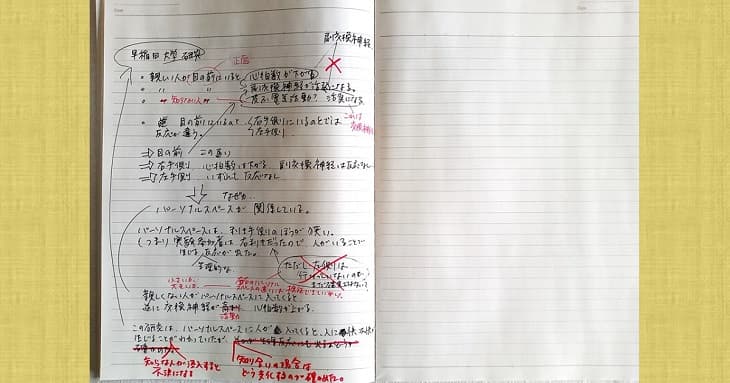 副交感神経
早稲田大学 研究
正面
・親しい人が目の前にいると 心拍数が下がる
・ 〃 〃 副交感神経が活発になる。
・ 〃 知らない人 〃 皮ふ電気活動? 活発になる
これは交感神経
・ 目の前にいるのと 右手側にいるのとでは
反応が違う。 左手側
⇒ 目の前 この通り
⇒ 右手側 心拍数は下がる 副交感神経は反応なし
⇒ 左手側 いずれも反応なし
なぜか…
パーソナルスペースが関係している。
パーソナルスペースは、利き手側のほうが狭い。
(つまり)実験参加者は右利きだったので、人がいることで
生じる反応が出た。
生理的な
ただし左側は
小さいか、
大きいか、
親しくない人がパーソナルスペースに入ってくると
逆に交感神経が 心拍数が上がる。
活動
この研究は、パーソナルスペースに人が入ってくると、人に快不快
生じることがわかっていたが、
知らない人が侵入すると
不快になる
知り合いの場合は
どう変化するのか確かめた。